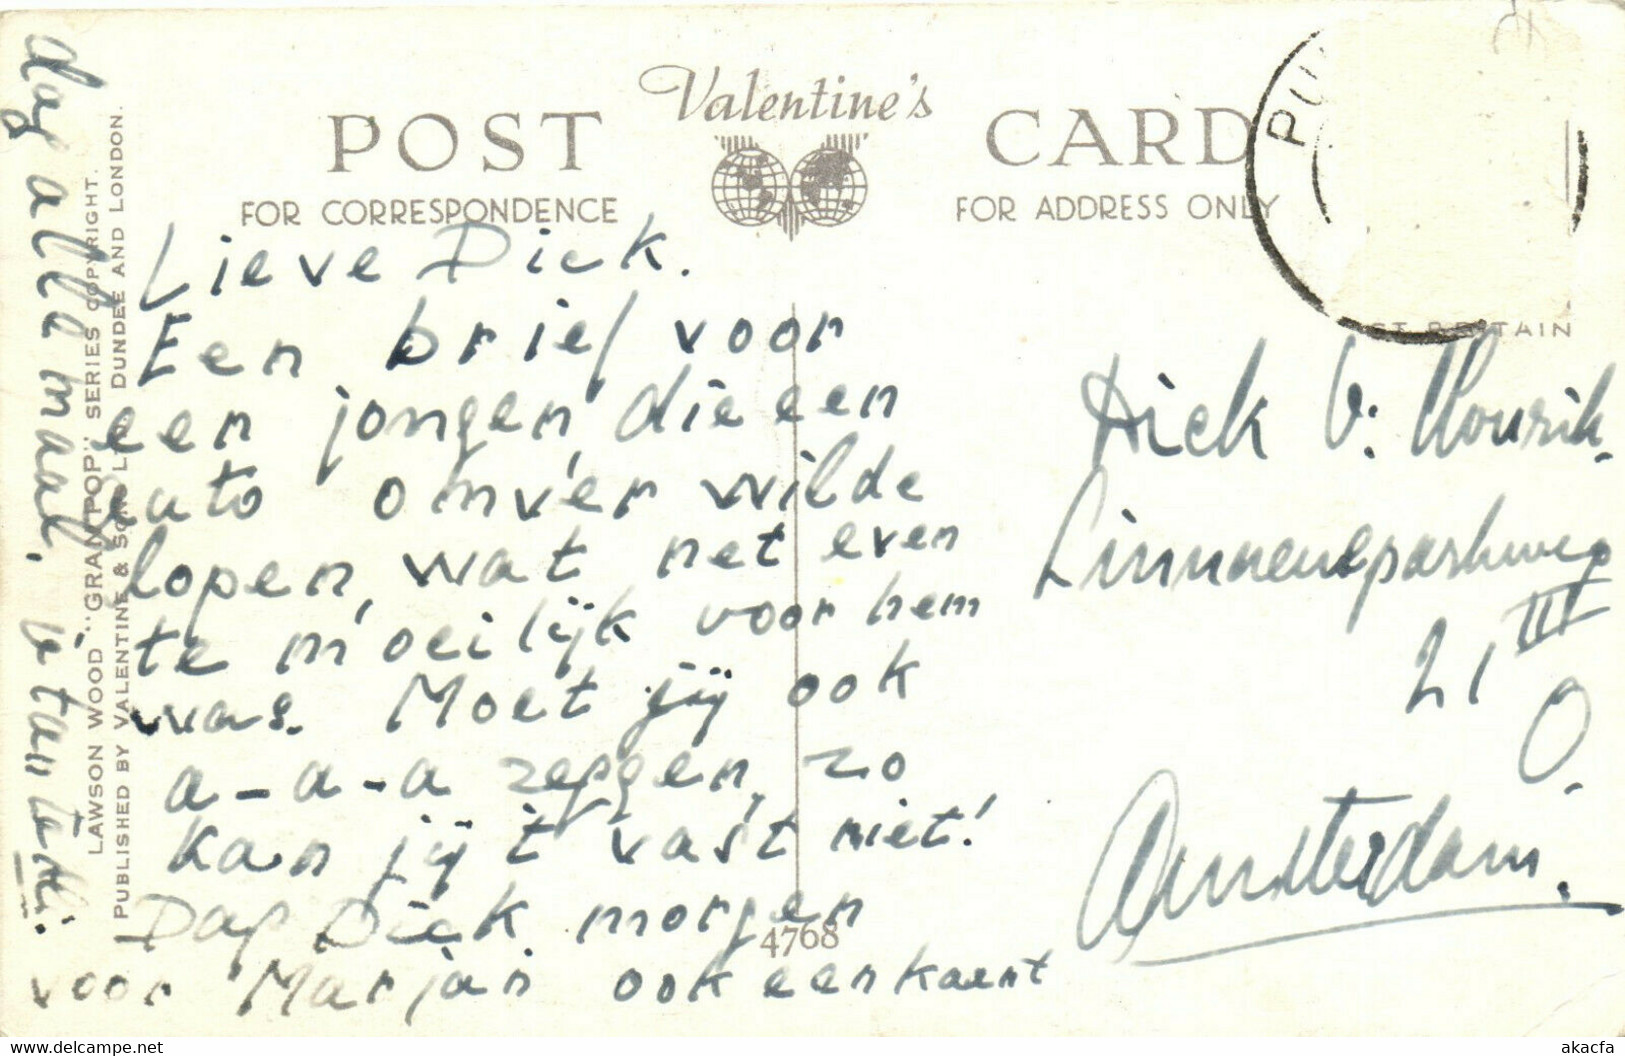 Valentine's
POST CARD
FOR CORRESPONDENCE
FOR ADDRESS ONLY
PU
BRITAIN
Lieve Dick.
Een brief voor
een jongen, die een
auto omver wilde
lopen, wat net even
te moeilijk voor hem
was. Moet jij ook
a-a-a zeggen, zo
kan jij 't vast niet!
Dag Dick morgen
voor Marjan ook een kaart
dag allemaal.
tante
Dick v.
21 III
O.
Amsterdam.
LAWSON WOOD "GRAN'POP" SERIES COPYRIGHT.
PUBLISHED BY VALENTINE & SONS LTD DUNDEE AND LONDON.
4768
akacfa